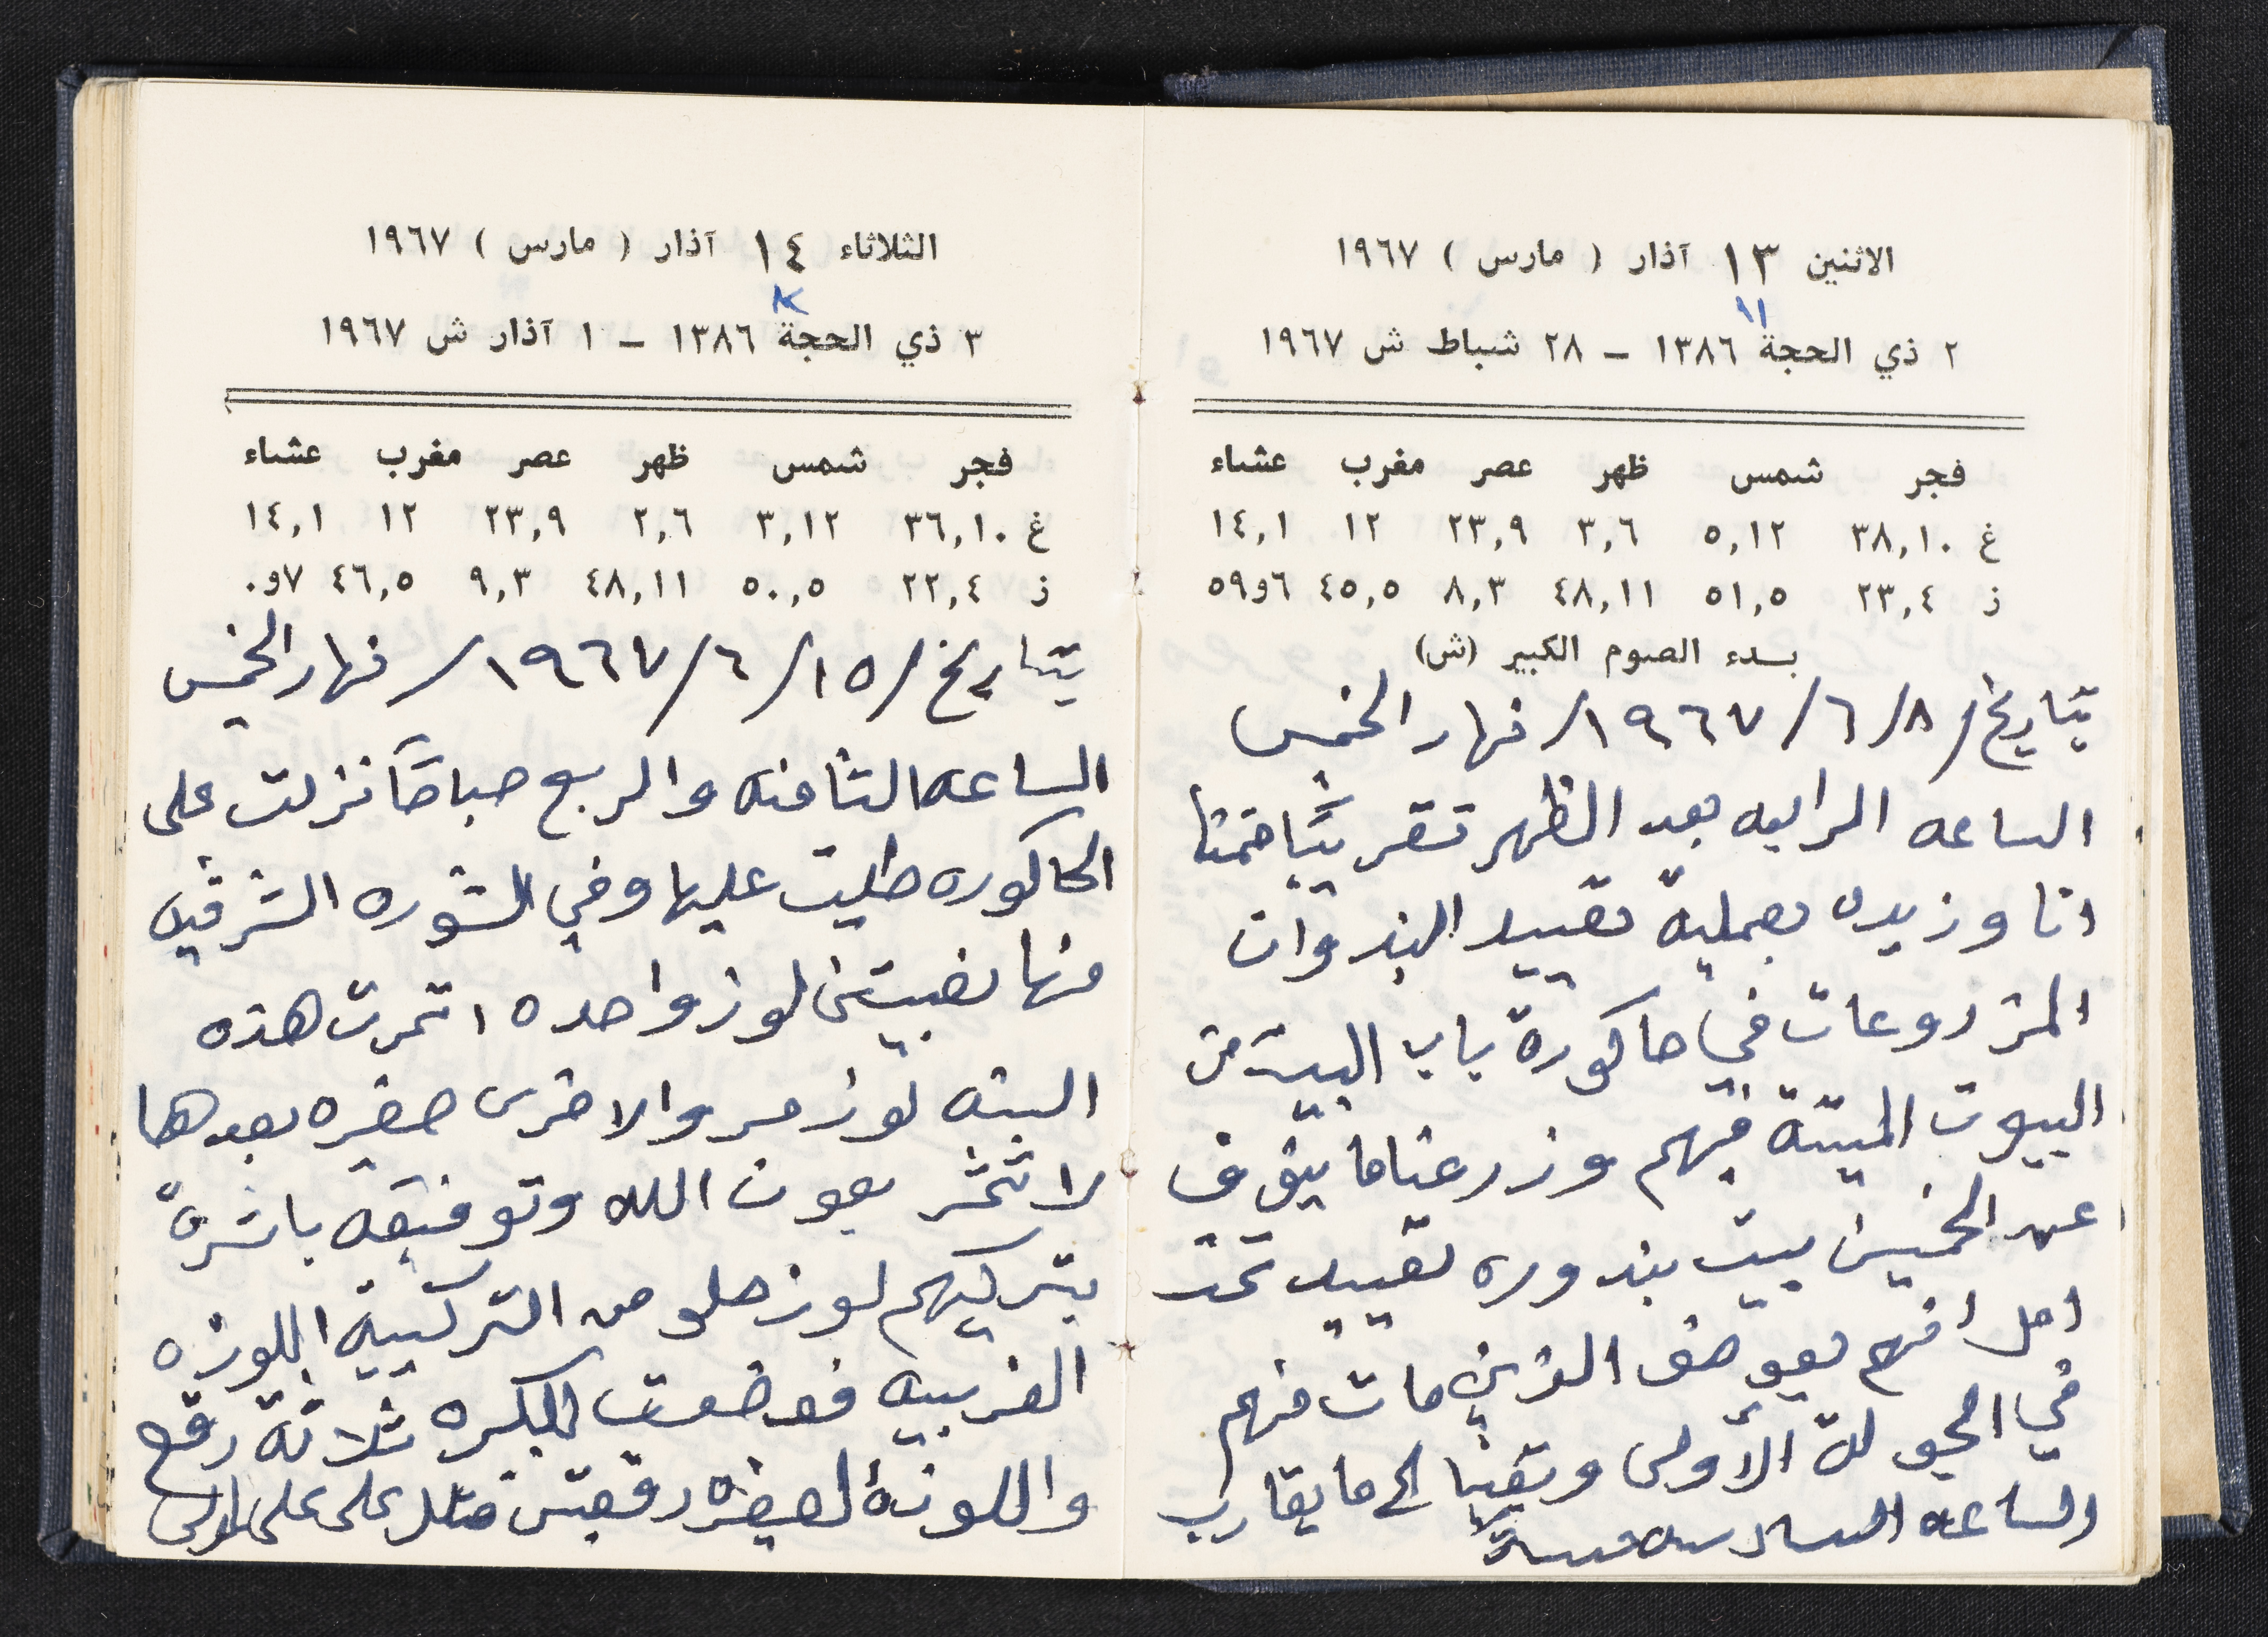 الاثنين ١٣ آذار ( مارس ) ١٩٦٧
١١
٢ ذي الحجة ١٣٨٦ – ٢٨ شباط ش ١٩٦٧
فجر شمس ظهر عصر مغرب عشاء
غ ٣٨,١٠ ٥,١٢ ٣,٦ ٢٣,٩ ١٢ ١٤,١
ز ٢٣,٤ ٥١,٥ ٤٨,١١ ٨,٣ ٤٥,٥ ٦و٥٩
بدء الصوم الكبير (ش)
بتاريخ /٨/٦/١٩٦٧/ نهار الخميس
الساعه الرابعه بعد الظهر تقريبًا قمنا
انا وزيده بعملية تعييد البندوان
المزروعات في حاكورة باب البيت من
البيوت الميتة فيهم وزرعنا ما ينوف
عن الخمسين بيت بندوره تعييد تحت
امل انهم يعوضو الذين مات منهم
في الجولة الأولى وبقينا الى ما يقارب
الساعه السادسه مساءً
الثلاثاء ١٤ آذار ( مارس ) ١٩٦٧
٣ ذي الحجة ١٣٨٦ – ١ آذار ش ١٩٦٧
فجر شمس ظهر عصر مغرب عشاء
غ ٣٦,١٠ ٣,١٢ ٢,٦ ٢٣,٩ ١٢ ١٤,١
ز ٢٢,٤ ٥٠,٥ ٤٨,١١ ٩,٣ ٤٦,٥ ٧و٠
بتاريخ /١٥/٦/١٩٦٧/ نهار الخميس
الساعه الثامنه والربع صباحًا نزلت على
الحاكوره طليت عليها وفي الشوره الشرقيه
منها نصبتين لوز واحده اثمرت هذه
السنه لوز مر والاخرى صغيره بعدها
لا تثمر بعون الله وتوفيقه باشرة
بتركيبهم لوز حلو من التركيبة اللوزه
الغربيه فوضعت للكبيره ثلاثة رقع
واللوزة لصغيره رقعتين متلد على على لولى